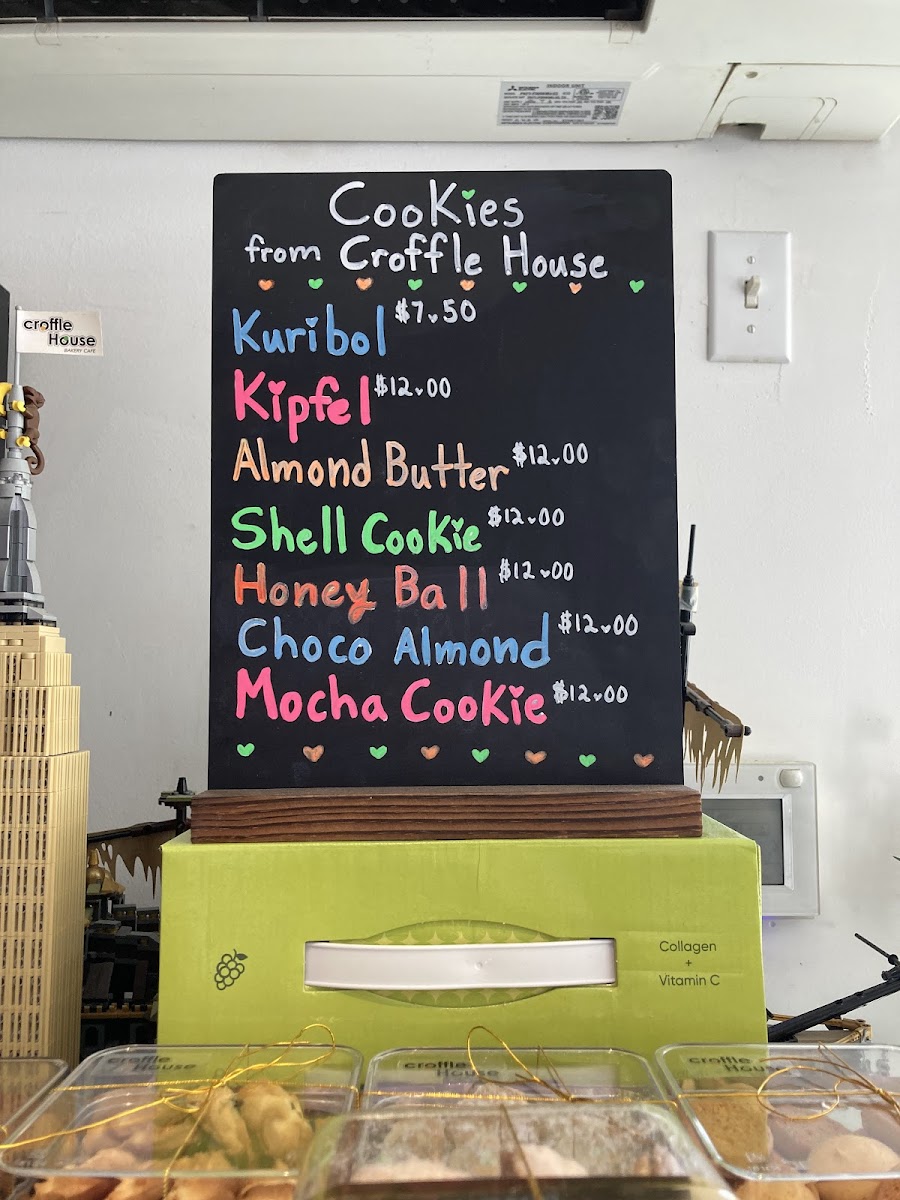 INDOOR UNIT
Cookies
from Croffle House
Kuribol $7.50
Kipfel $12.00
Almond Butter $12.00
Shell Cookie $12.00
Honey Ball $12.00
Choco Almond $12.00
Mocha Cookie $12.00
croffle
House
BAKERY CAFE
Collagen
+
Vitamin C
croffle
House
croffle
House
croffle
House